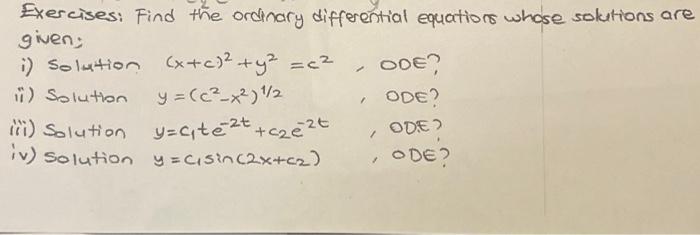 Exercises: Find the ordinary differential equations whose solutions are
given:
i) Solution (x+c)² + y² = c² , ODE?
ii) Solution y = (c² - x²)^1/2 , ODE?
iii) Solution y = c₁te^-2t + c₂e^-2t , ODE?
iv) Solution y = c₁sin(2x+c₂) , ODE?